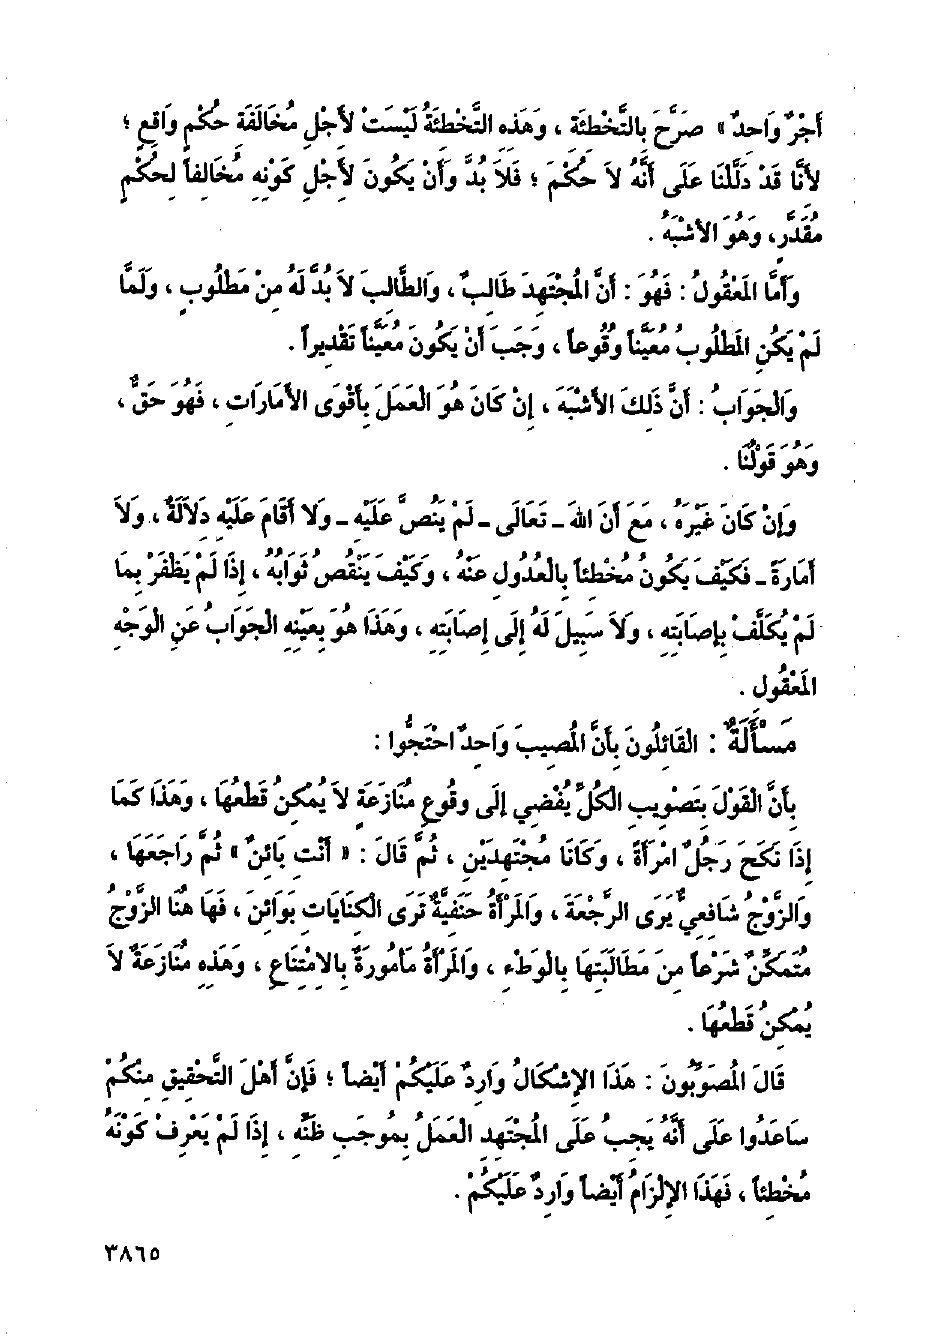 أَجْرٌ وَاحِدٌ » صَرَّحَ بِالتَّخْطِئَةِ ، وَهَذِهِ التَّخْطِئَةُ لَيْسَتْ لأَجْلِ مُخَالَفَةِ حُكْمٍ وَاقِعٍ ؛
لأَنَّا قَدْ دَلَّلْنَا عَلَى أَنَّهُ لاَ حُكْمَ ؛ فَلاَ بُدَّ وَأَنْ يَكُونَ لأَجْلِ كَوْنِهِ مُخَالِفاً لِحُكْمٍ
مُقَدَّرٍ، وَهُوَ الأَشْبَهُ .
وَأَمَّا المَعْقُولُ : فَهُوَ : أَنَّ المُجْتَهِدَ طَالِبٌ ، وَالطَّالِبَ لاَ بُدَّ لَهُ مِنْ مَطْلُوبٍ ، وَلَمَّا
لَمْ يَكُنِ المَطْلُوبُ مُعَيَّناً وُقُوعاً ، وَجَبَ أَنْ يَكُونَ مُعَيَّناً تَقْدِيراً .
وَالجَوَابُ : أَنَّ ذَلِكَ الأَشْبَهَ ، إِنْ كَانَ هُوَ العَمَلَ بِأَقْوَى الأَمَارَاتِ ، فَهُوَ حَقٌّ ،
وَهُوَ قَوْلُنَا .
وَإِنْ كَانَ غَيْرَهُ ، مَعَ أَنَّ اللهَ ـ تَعَالَى ـ لَمْ يَنُصَّ عَلَيْهِ ـ وَلا أَقَامَ عَلَيْهِ دِلاَلَةً ، وَلاَ
أَمَارَةً ـ فَكَيْفَ يَكُونُ مُخْطِئاً بِالعُدُولِ عَنْهُ ، وَكَيْفَ يَنْقُصُ ثَوَابُهُ ، إِذَا لَمْ يَظْفَرْ بِمَا
لَمْ يُكَلَّفْ بِإِصَابَتِهِ ، وَلاَ سَبِيلَ لَهُ إِلَى إِصَابَتِهِ ، وَهَذَا هُوَ بِعَيْنِهِ الجَوَابُ عَنِ الوَجْهِ
المَعْقُولِ .
مَسْأَلَةٌ : القَائِلُونَ بِأَنَّ المُصِيبَ وَاحِدٌ احْتَجُّوا :
بِأَنَّ القَوْلَ بِتَصْوِيبِ الكُلِّ يُفْضِي إِلَى وقُوعِ مُنَازَعَةٍ لاَ يُمْكِنُ قَطْعُهَا ، وَهَذَا كَمَا
إِذَا نَكَحَ رَجُلٌ امْرَأَةً ، وَكَانَا مُجْتَهِدَيْنِ ، ثُمَّ قَالَ : « أَنْتِ بَائِنٌ » ثُمَّ رَاجَعَهَا ،
وَالزَّوْجُ شَافِعِيٌّ يَرَى الرَّجْعَةَ ، وَالمَرْأَةُ حَنَفِيَّةٌ تَرَى الكِنَايَاتِ بَوَائِنَ ، فَهَا هُنَا الزَّوْجُ
مُتَمَكِّنٌ شَرْعاً مِنَ مَطَالَبَتِهَا بِالوَطْءِ ، وَالمَرْأَةُ مَأمُورَةٌ بِالامْتِنَاعِ ، وَهَذِهِ مُنَازَعَةٌ لاَ
يُمْكِنُ قَطْعُهَا .
قَالَ المُصَوِّبُونَ : هَذَا الإِشْكَالُ وَارِدٌ عَلَيْكُمْ أَيْضاً ؛ فَإِنَّ أَهْلَ التَّحْقِيقِ مِنْكُمْ
سَاعَدُوا عَلَى أَنَّهُ يَجِبُ عَلَى المُجْتَهِدِ العَمَلُ بِمُوجَبِ ظَنِّهِ ، إِذَا لَمْ يَعْرِفْ كَوْنَهُ
مُخْطِئاً ، فَهَذَا الإِلْزَامُ أَيْضاً وَارِدٌ عَلَيْكُمْ .
٣٨٦٥